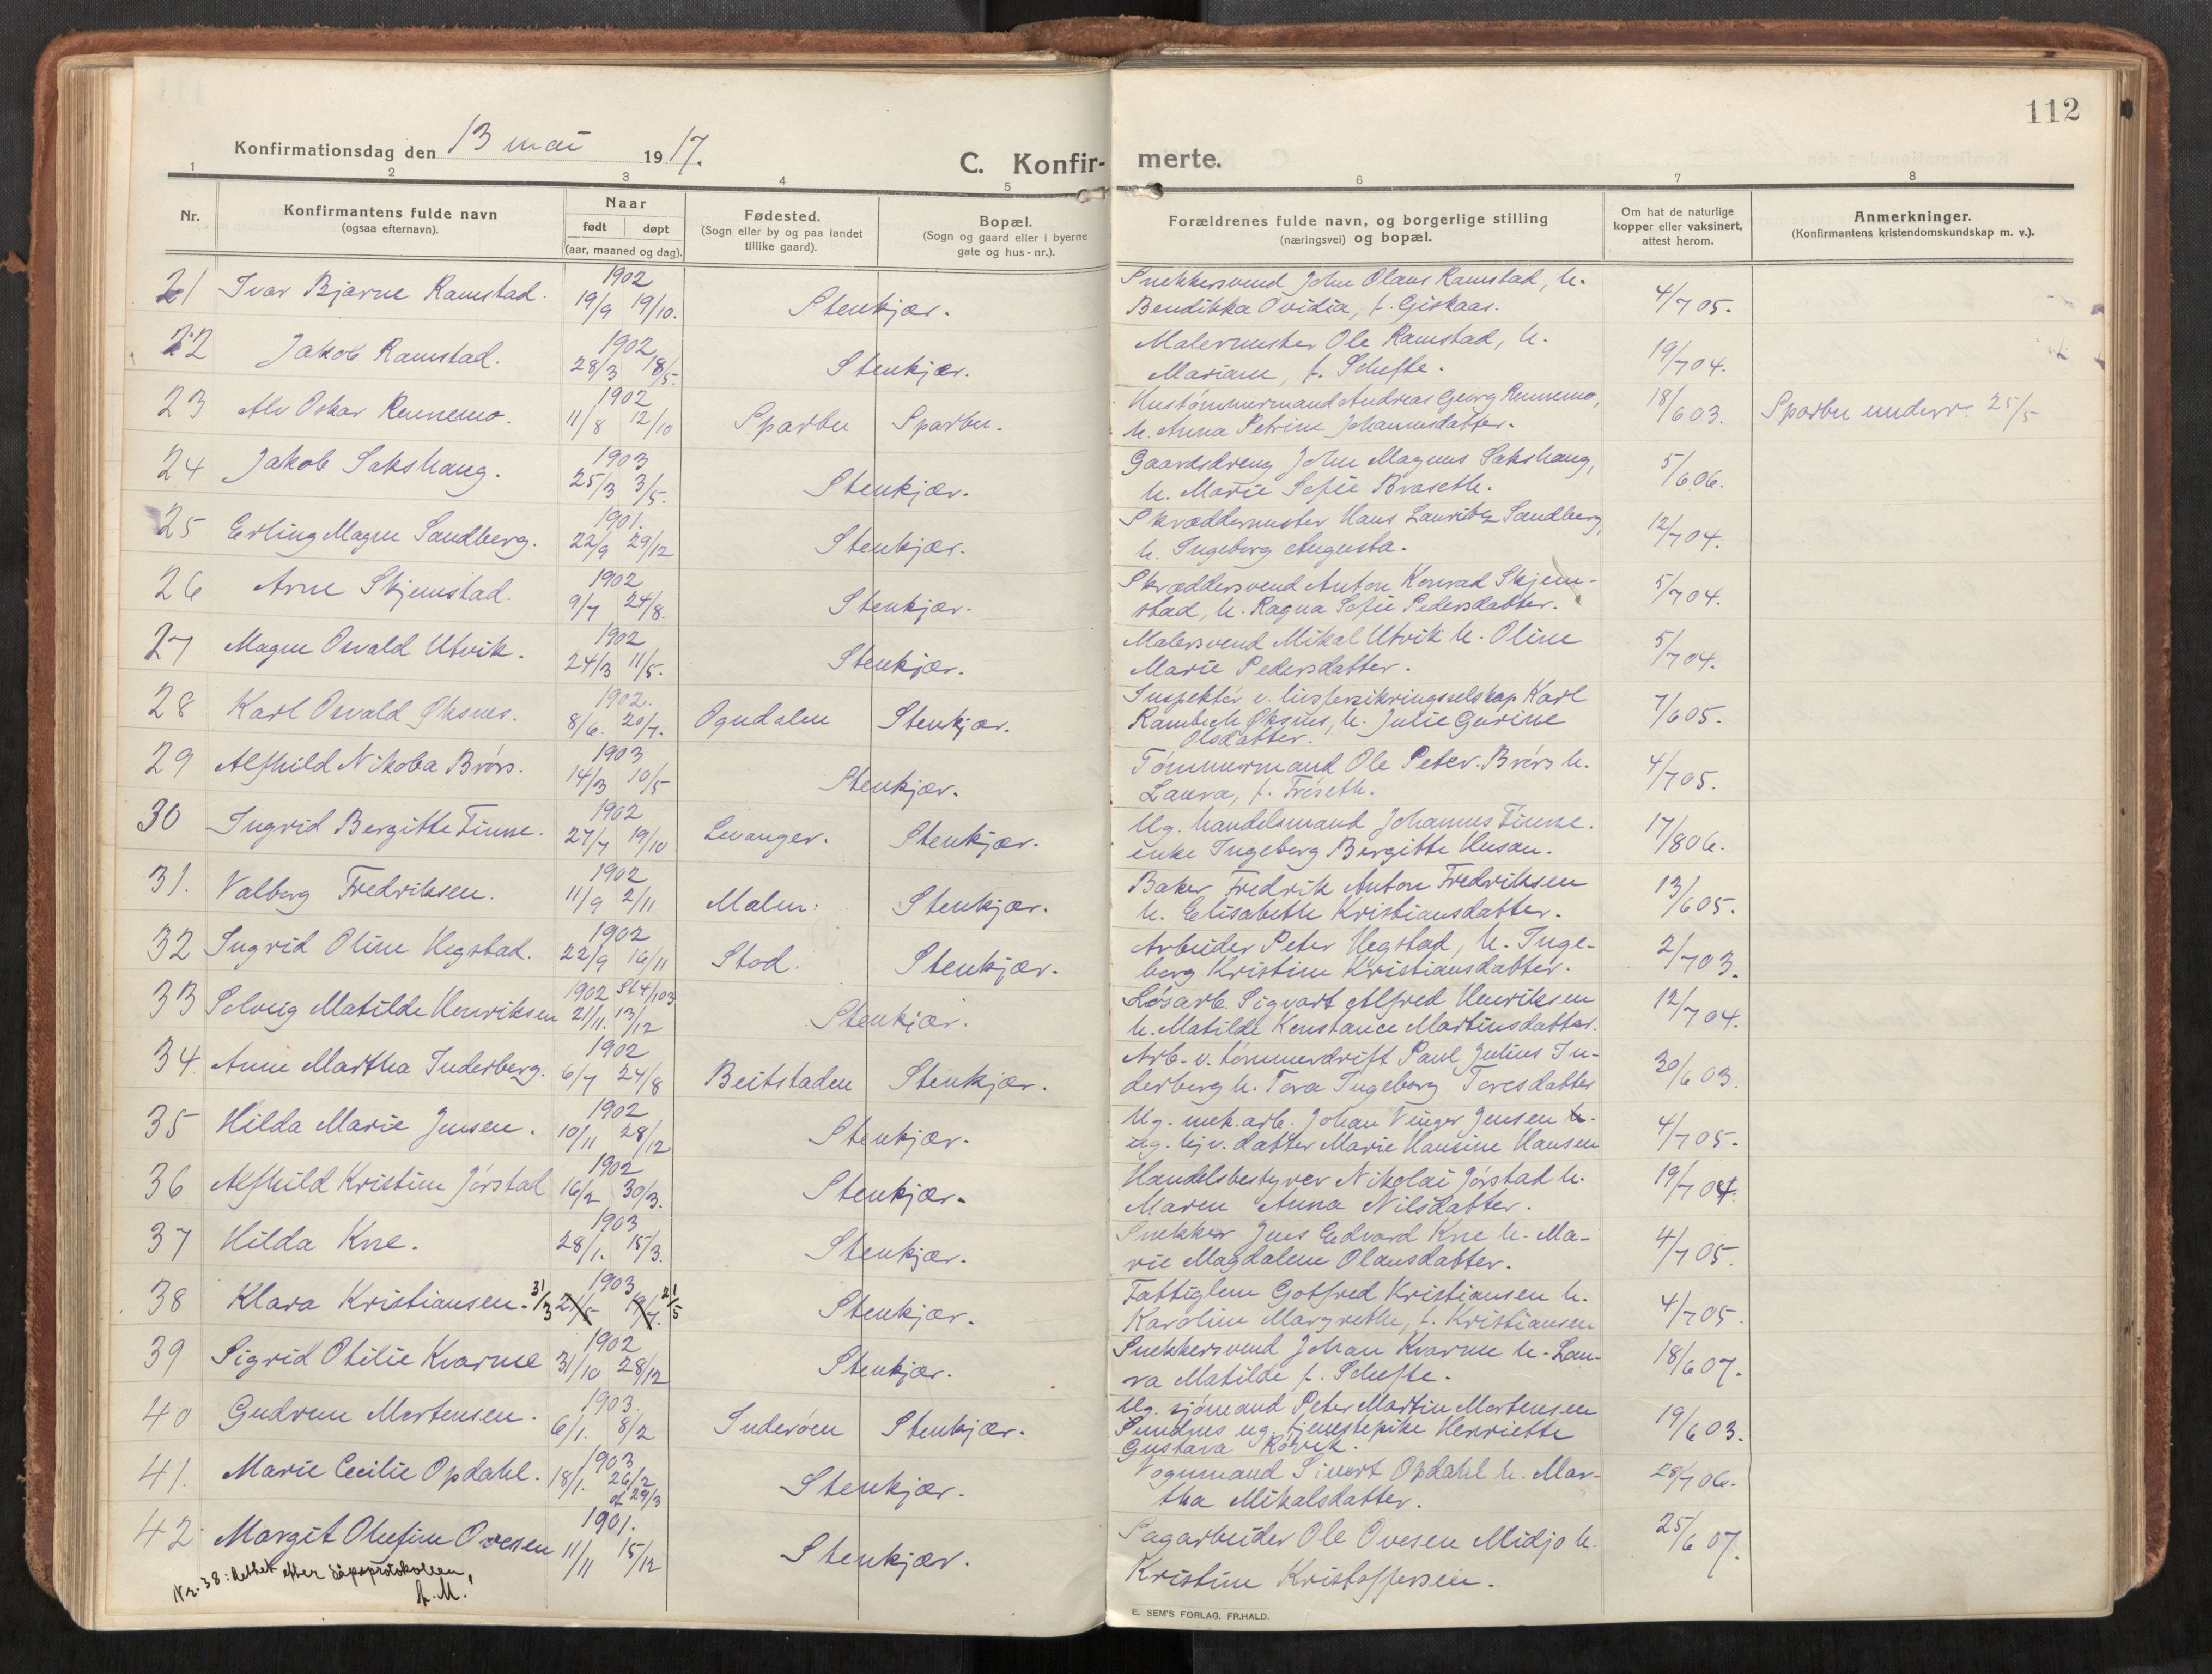 112
Konfirmationsdag den 13 mai 1917.
C. Konfirmerte.
1 2 3 4 5 6 7 8
Nr.
Konfirmantens fulde navn
(ogsaa efternavn).
Naar
født døpt
(aar, maaned og dag).
Fødested.
(Sogn eller by og paa landet
tillike gaard).
Bopæl.
(Sogn og gaard eller i byerne
gate og hus-nr.).
Forældrenes fulde navn, og borgerlige stilling
(næringsvei) og bopæl.
Om hat de naturlige
kopper eller vaksinert,
attest herom.
Anmerkninger.
(Konfirmantens kristendomskundskap m. v.).
21 Ivar Bjarne Ramstad. 1902 19/9 19/10. Stenkjær. Snekkersvend John Olaus Ramstad, h. 4/7 05.
Bendikka Ovidia, f. Giskaas.
22 Jakob Ramstad. 1902 28/3 18/5. Stenkjær. Malermester Ole Ramstad, h. 19/7 04.
Mariane, f. Schefte.
23 Alv Oskar Rennemo. 1902 11/8 12/10 Sparbu Sparbu. Hustömmermand Andreas Georg Rennemo, 18/6 03. Sparbu underr. 25/5
h. Anna Petrine Johannesdatter.
24 Jakob Sakshaug. 1903 25/3 3/5. Stenkjær. Gaardsdreng John Magnus Sakshaug, 5/6 06.
h. Marie Sofie Braseth.
25 Erling Magne Sandberg. 1901. 22/9 29/12 Stenkjær. Skræddermester Hans Lauritz Sandberg, 12/7 04.
h. Ingeborg Augusta.
26 Arne Skjemstad. 1902 9/7 24/8. Stenkjær. Skræddersvend Anton Konrad Skjem- 5/7 04.
stad, h. Ragna Sofie Pedersdatter.
27 Magne Osvald Utvik. 1902 24/3 11/5. Stenkjær. Malersvend Mikal Utvik h. Oline 5/7 04.
Marie Pedersdatter.
28 Karl Osvald Øksnes. 1902. 8/6. 20/7. Ogndalen Stenkjær. Inspektör v. livsforsikringsselskap Karl 7/6 05.
Rambech Øksnes, h. Julie Gurine
Olsdatter.
29 Alfhild Nikoba Brørs. 1903 14/3 10/5 Stenkjær. Tömmermand Ole Peter Brørs h. 4/7 05.
Laura, f. Fröseth.
30 Ingrid Bergitte Finne. 1902 27/7 19/10 Levanger. Stenkjær. Ug. handelsmand Johannes Finne. 17/8 06.
enke Ingeborg Bergitte Husan.
31. Valborg Fredriksen. 1902 11/9 2/11 Malm. Stenkjær. Baker Fredrik Anton Fredriksen 13/6 05.
h. Elisabeth Kristiansdatter.
32 Ingrid Oline Hegstad. 1902 22/9 16/11 Stod. Stenkjær. Arbeider Peter Hegstad, h. Inge- 2/7 03.
borg Kristine Kristiansdatter.
33 Solveig Matilde Henriksen 1902 St 4/1 03 21/11. 13/12 Stenkjær. Løsarb. Sigvart Alfred Henriksen 12/7 04.
h. Matilde Konstance Martinsdatter.
34 Anne Martha Inderberg. 1902 6/7 24/8 Beitstaden Stenkjær. Arb. v. tömmerdrift Paul Julius In- 30/6 03.
derberg h. Tora Ingeborg Toresdatter
35 Hilda Marie Jensen. 1902 10/11 28/12 Stenkjær. Ug. mek.arb. Johan Vinger Jensen h. 4/7 05.
ug. hjv. datter Marie Hansine Hansen
36 Alfhild Kristine Jörstad 1902 16/2 30/3. Stenkjær. Handelsbestyrer Nikolai Jörstad h. 19/7 04.
Maren Anna Nilsdatter.
37 Hilda Kne. 1903 28/1. 15/3. Stenkjær. Snekker Jens Edvard Kne h. Ma- 4/7 05.
rie Magdalene Olausdatter.
38 Klara Kristiansen. 31/3 1903 21/5 19/7. 21/5 Stenkjær. Fattiglem Gotfred Kristiansen h. 4/7 05.
Karoline Margrethe, f. Kristiansen
39 Sigrid Otilie Kvarme 1902 31/10 28/12 Stenkjær. Snekkersvend Johan Kvarme h. Lau- 18/6 07.
ra Matilde f. Schefte.
40 Gudrun Mortensen. 1903. 6/1. 8/2 Inderöen Stenkjær. Ug. sjömand Peter Martin Mortensen 19/6 03.
Sundnes ug. tjenestepike Henriette
Gustava Rövik.
41. Marie Cecilie Opdahl. 1903 18/1. 26/2 st 29/3 Stenkjær. Vognmand Sivert Opdahl h. Mar- 28/7 06.
tha Mikalsdatter.
42. Margit Olufine Ovesen 1901. 11/11 15/12 Stenkjær. Sagarbeider Ole Ovesen Midjo h. 25/6 07.
Kristine Kristoffersen.
Nr. 38: Rettet efter dåpsprotokollen,
A.M.
E. SEM'S FORLAG, FR.HALD.